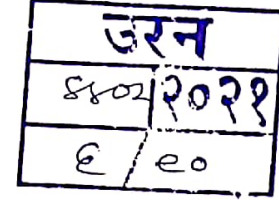 उरन
४४०२ २०२१
६ / १०